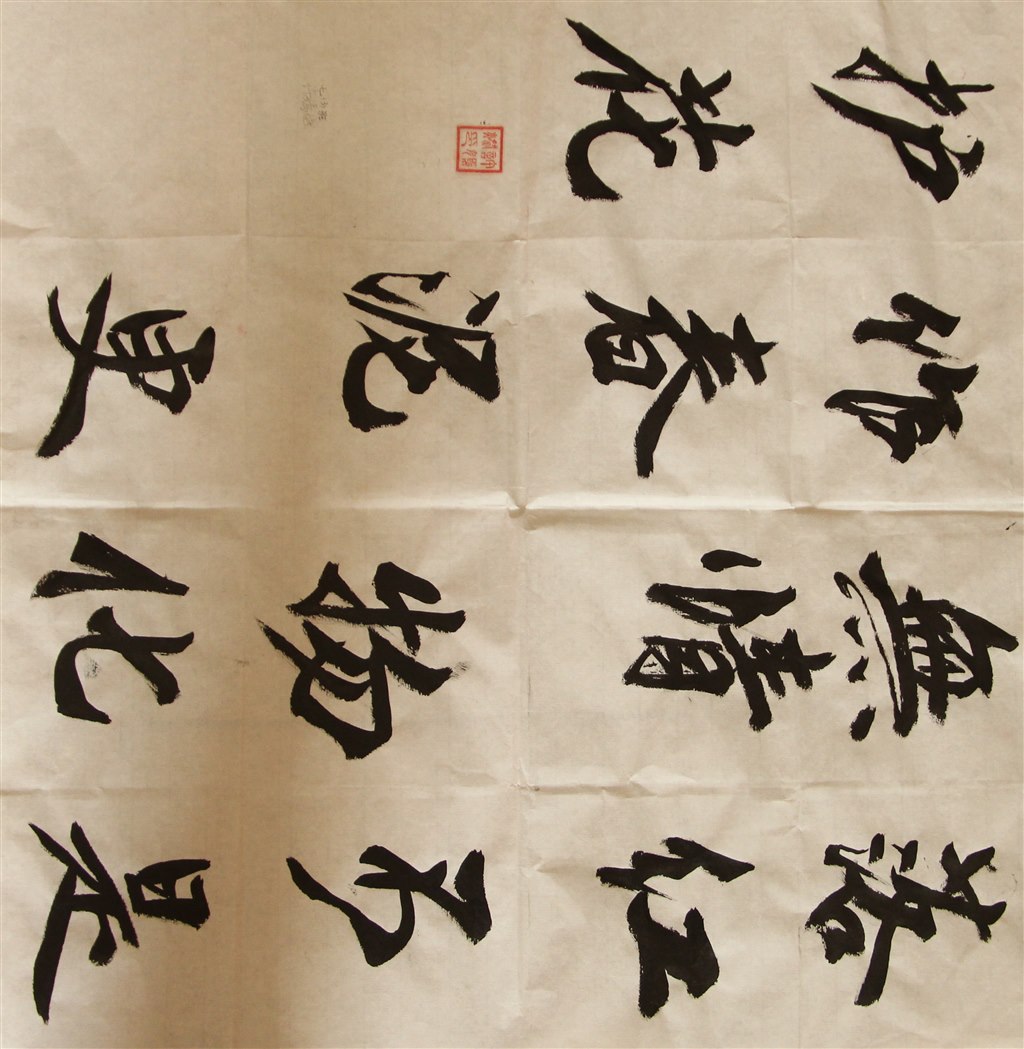 落红不是
無情物化
作春泥更
护花